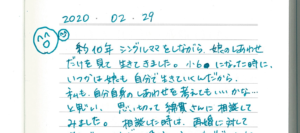 2020 . 02 . 29
約10年 シングルママをしながら、娘のしあわせ
だけを見て 生きてきました。小6 になった時に、
いつかは娘も 自分で生きていくんだから、
私も、自分自身のしあわせを考えてもいいかな…
と思い、思い切って 綿貫さんに 相談して
みました。 相談した時は、再婚に対して